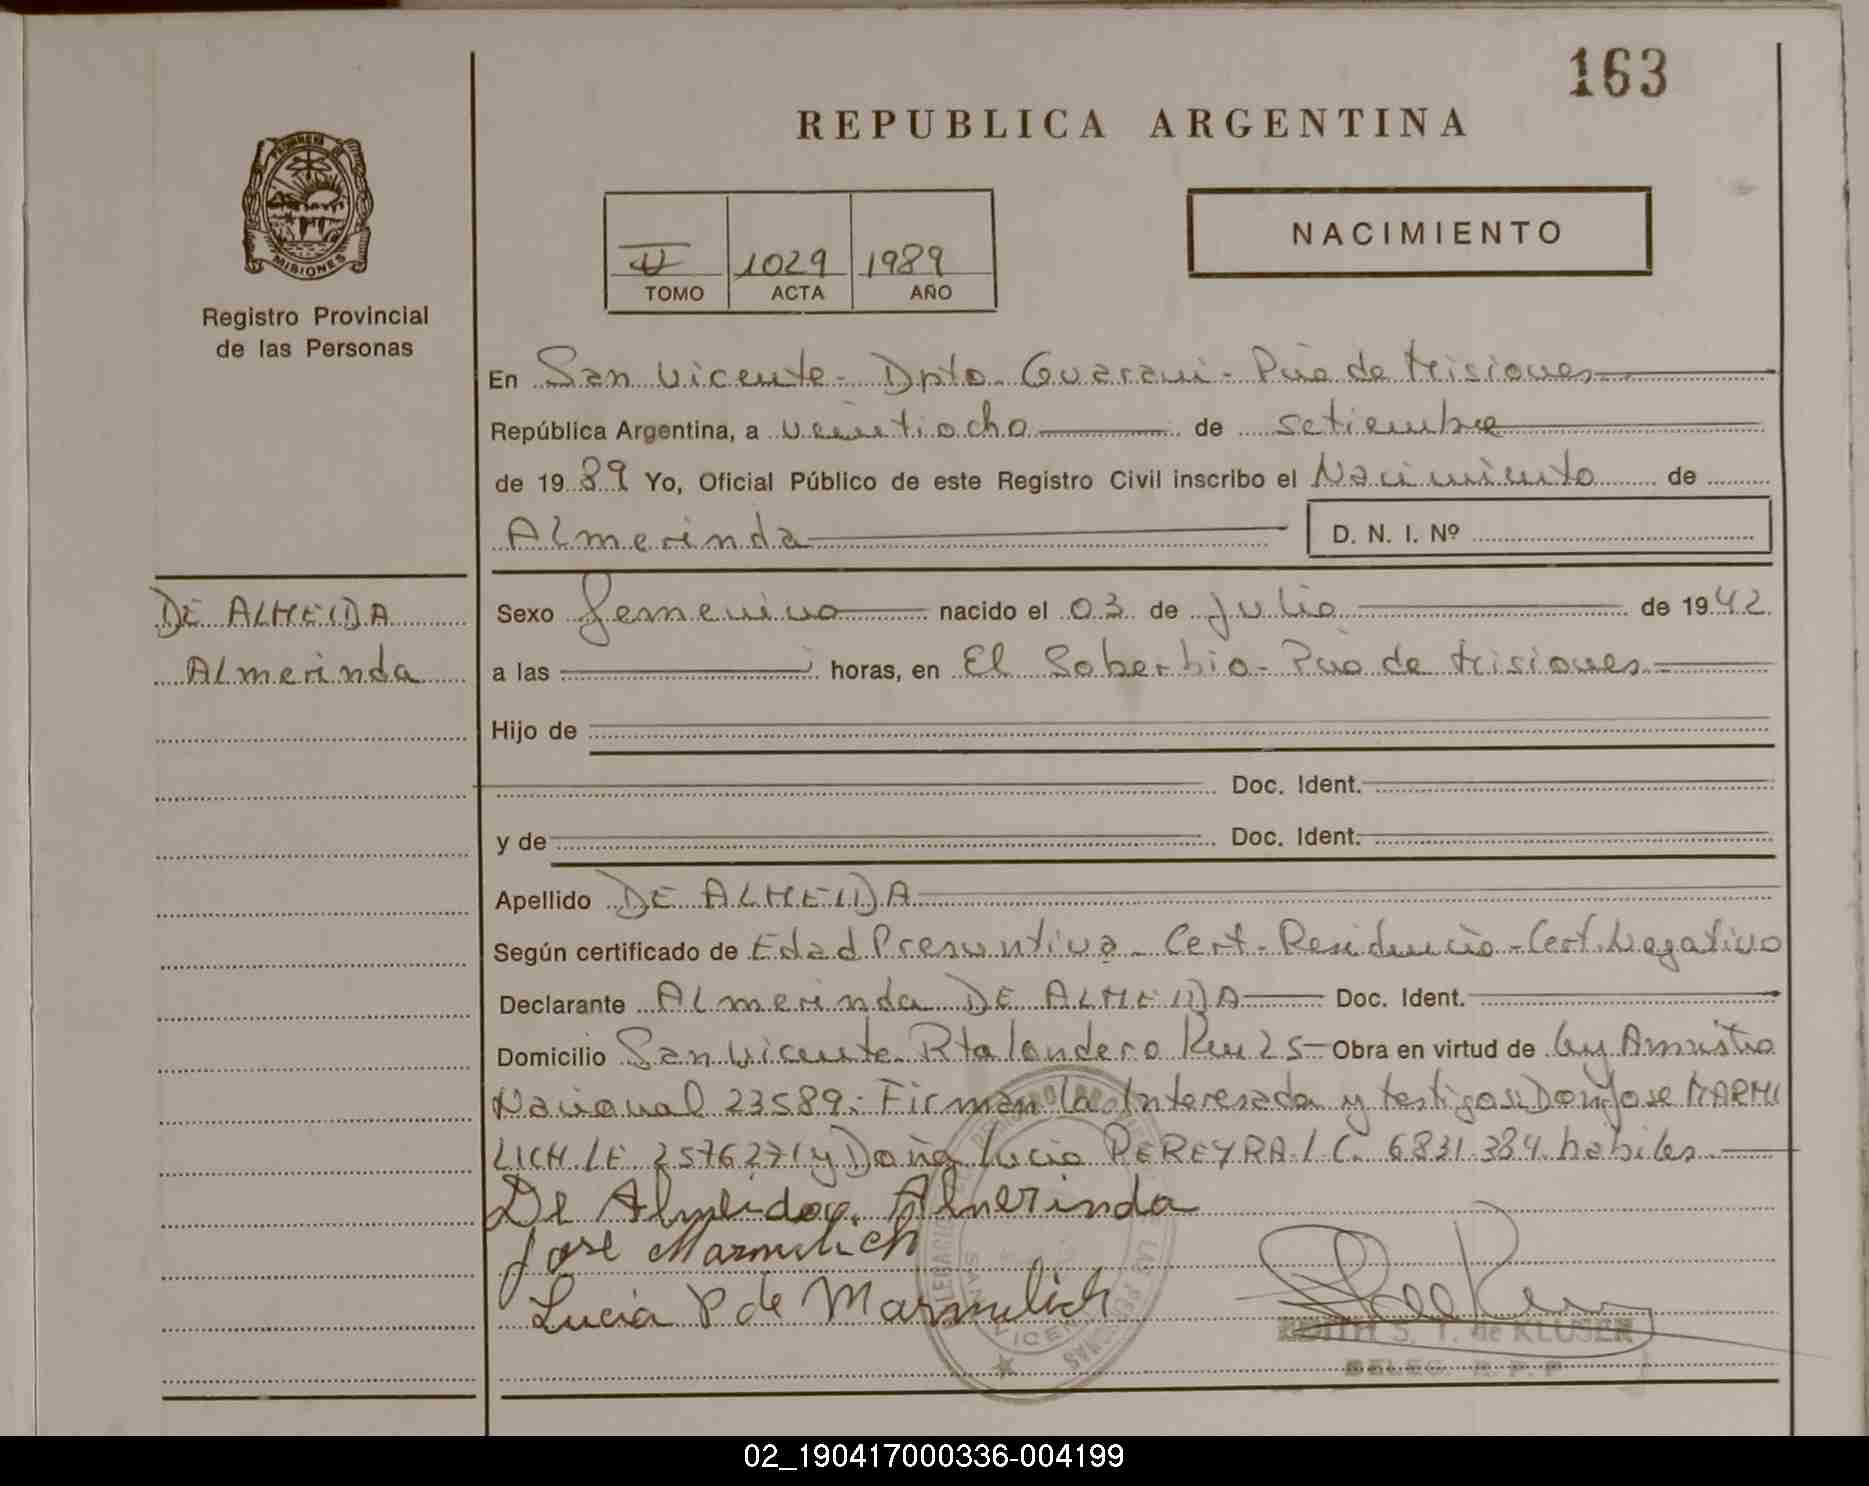 163
REPUBLICA ARGENTINA
PROVINCIA DE
MISIONES
Registro Provincial
de las Personas
II 1029 1989
TOMO ACTA AÑO
NACIMIENTO
En San Vicente - Dpto Guarani - Pcia de Misiones
República Argentina, a veintiocho de setiembre
de 1989 Yo, Oficial Público de este Registro Civil inscribo el Nacimiento de
Almerinda D. N. I. Nº
DE ALMEIDA
Almerinda
Sexo femenino nacido el 03 de Julio de 1942
a las horas, en El Soberbio - Pcia de Misiones
Hijo de
Doc. Ident.
y de Doc. Ident.
Apellido DE ALMEIDA
Según certificado de Edad Presuntiva - Cert - Residencia - Cert. Negativo
Declarante Almerinda DE ALMEIDA Doc. Ident.
Domicilio San Vicente Pta Londero Km 25 - Obra en virtud de Ley Amnistia
Nacional 23589.- Firman la Interesada y testigos: Don Jose MARMI
LICH LE 2576271 y Doña Lucia PEREYRA L C. 6831.384 habiles
De Almeida Almerinda
José Marmilich
Lucia P de Marmelich
EDITH S. T. de KLUSER
DELEG. R. P. P
02_190417000336-004199